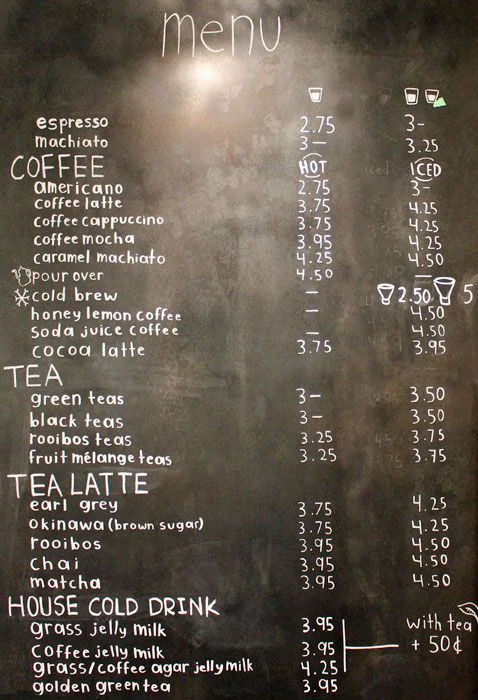 menu
espresso 2.75 3-
machiato 3- 3.25
COFFEE HOT ICED
americano 2.75 3-
coffee latte 3.75 4.25
coffee cappuccino 3.75 4.25
coffee mocha 3.95 4.25
caramel machiato 4.25 4.50
pour over 4.50 -
cold brew - 2.50 5
honey lemon coffee - 4.50
soda juice coffee - 4.50
cocoa latte 3.75 3.95
TEA
green teas 3- 3.50
black teas 3- 3.50
rooibos teas 3.25 3.75
fruit mélange teas 3.25 3.75
TEA LATTE
earl grey 3.75 4.25
okinawa (brown sugar) 3.75 4.25
rooibos 3.95 4.50
chai 3.95 4.50
matcha 3.95 4.50
HOUSE COLD DRINK
grass jelly milk 3.95 with tea
coffee jelly milk 3.95 + 50¢
grass/coffee agar jelly milk 4.25
golden green tea 3.95